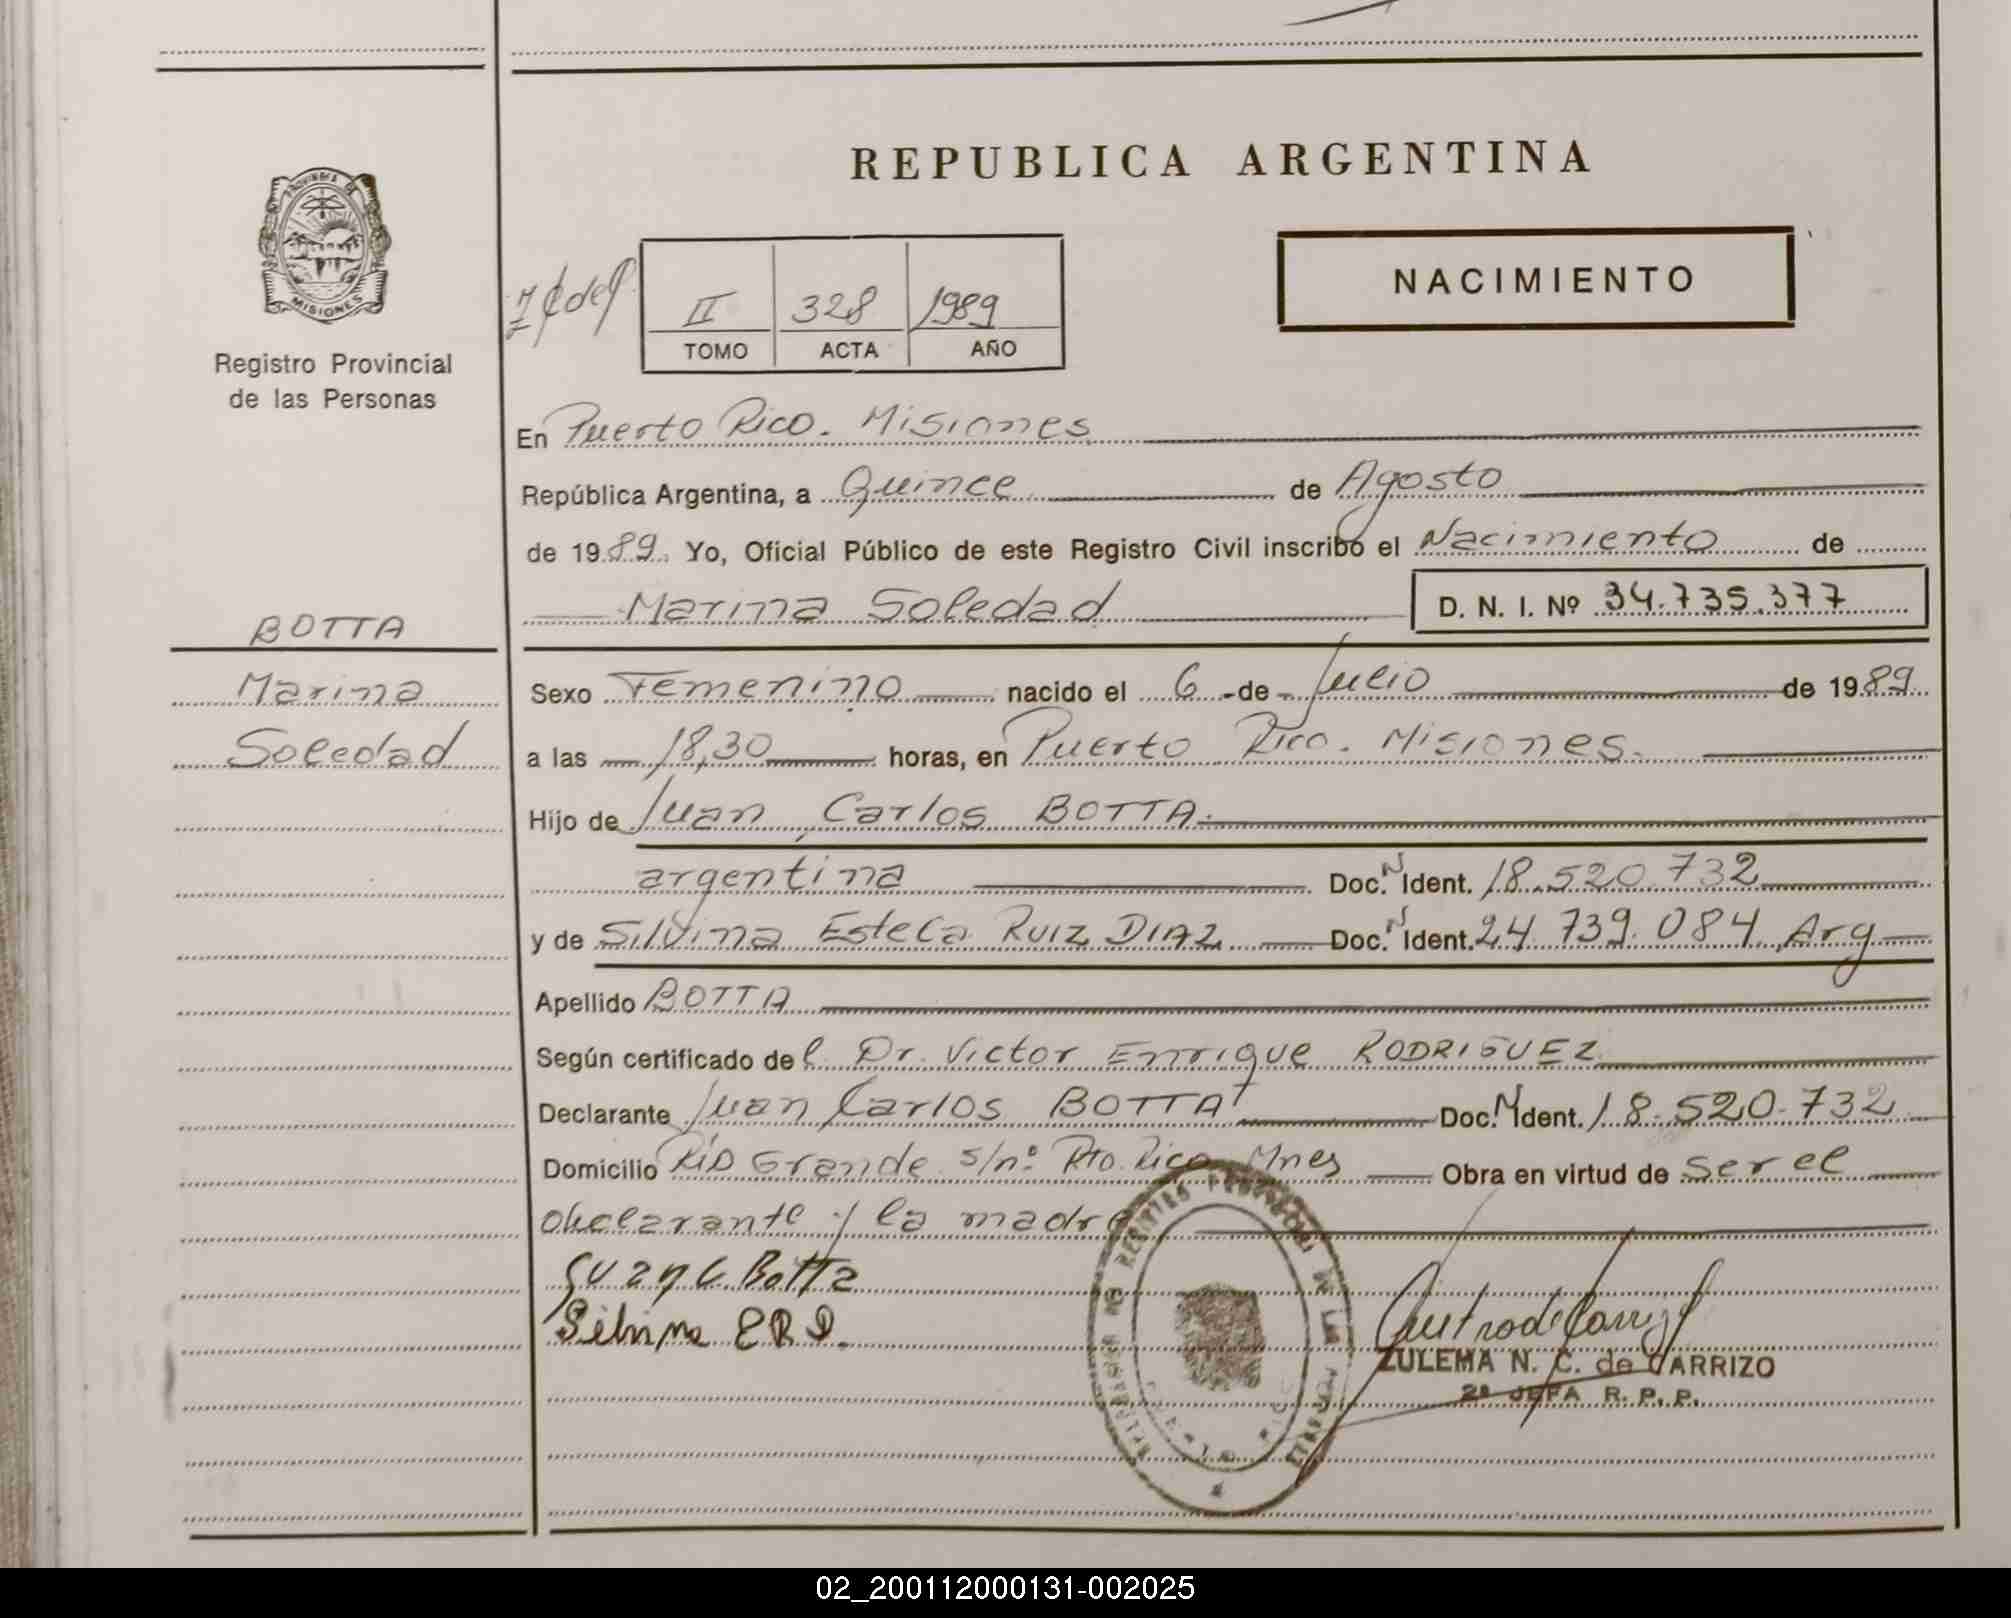 REPUBLICA ARGENTINA
PROVINCIA DE
MISIONES
Registro Provincial
de las Personas
NACIMIENTO
II 328 1989
TOMO ACTA AÑO
En Puerto Rico. Misiones
República Argentina, a Quince de Agosto
de 1989. Yo, Oficial Público de este Registro Civil inscribo el Nacimiento de
Marina Soledad D. N. I. Nº 34.735.377
BOTTA
Marina
Soledad
Sexo Femenino nacido el 6 de Julio de 1989
a las 18,30 horas, en Puerto Rico. Misiones.
Hijo de Juan Carlos BOTTA
argentina Doc. N Ident. 18.520.732
y de Silvina Estela RUIZ DIAZ Doc. N Ident. 24.739.084 Arg
Apellido BOTTA
Según certificado del Dr. Victor Enrique RODRIGUEZ
Declarante Juan Carlos BOTTA Doc. N Ident. 18.520.732
Domicilio Río Grande s/nº Pto. Rico Mnes Obra en virtud de ser el
declarante y la madre
Juan C Botta
Silvina E R D.
ZULEMA N. C. de CARRIZO
2ª JEFA R. P. P.
02_200112000131-002025